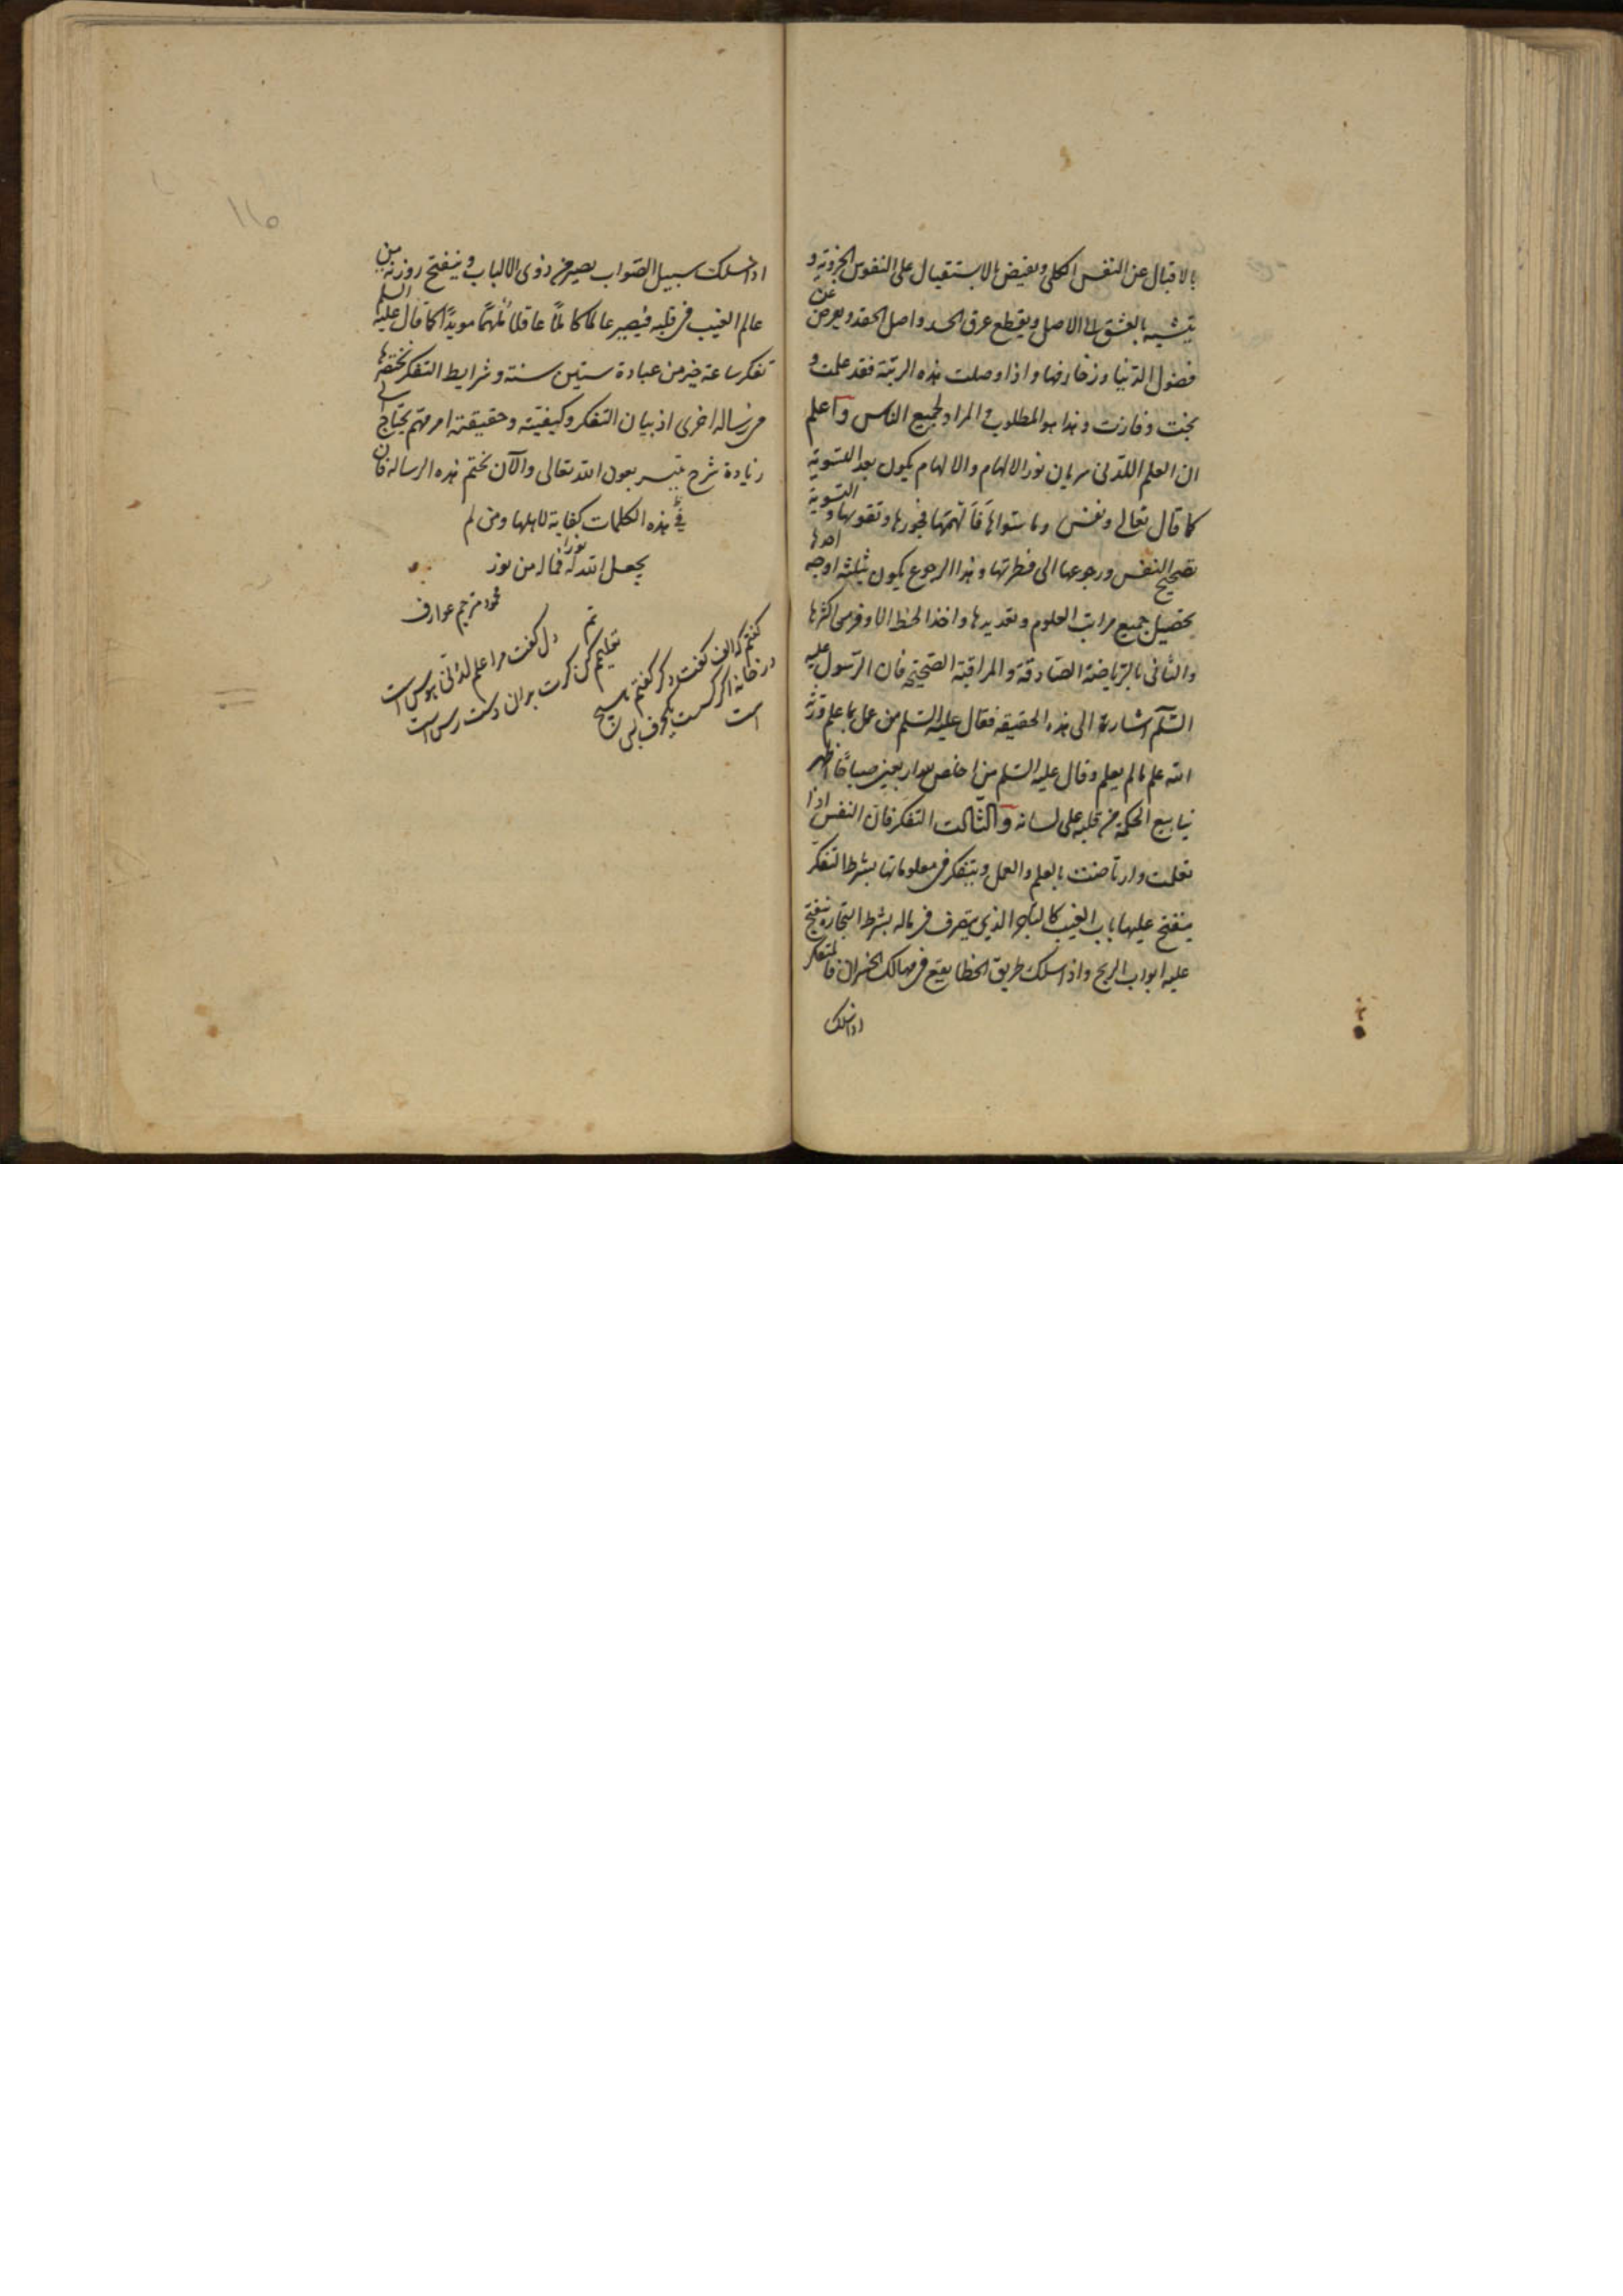 بالاقبال عن النفس الكلى ويفيض بالاستقبال على النفوس الجزوية و
يتشبه بالعشق الى الاصل ويقطع عرق الحسد واصل الحقد ويعرض عن
فضول الدنيا وزخارفها واذا وصلت هذه الرتبة فقد علمت و
نجت وفازت وهذا هو المطلوب والمراد لجميع الناس واعلم
ان العلم اللدنى سريان نور الالهام والالهام يكون بعد التسوية
كما قال تعالى ونفس وما سواها فالهمها فجورها وتقويها والتسوية
تصحيح النفس ورجوعها الى فطرتها وهذا الرجوع يكون بثلثة اوجه احدها
تحصيل جميع مراتب العلوم وتعديدها واخذ الحظ الاوفر من اكثرها
والثانى بالرياضة الصادقة والمراقبة الصحيحة فان الرسول عليه
السلم اشارة الى هذه الحقيقه فقال عليه السلم من عمل بما علم ورثه
الله علم ما لم يعلم وقال عليه السلم من اخلص لله اربعين صباحا اظهر
ينابيع الحكمة من قلبه على لسانه والثالث التفكر فان النفس اذا
تعلمت وارتاضت بالعلم والعمل ويتفكر فى معلوماتها بشرط التفكر
ينفتح عليها باب الغيب كالتاجر الذي يتصرف فى ماله بشرط التجارة ينفتح
عليه ابواب الربح واذا سلك طريق الخطا يقع فى مهالك الخسران فالمتفكر
اذا سلك
١١٥
اذا سلك سبيل الصواب يصير من ذوى الالباب وينفتح روزنة من
عالم الغيب فى قلبه فيصير عالما كاملا عاقلا ملهما مويدا كما قال عليه السلم
تفكر ساعة خير من عبادة ستين سنة وشرايط التفكر نختصرها
من رساله اخرى اذ بيان التفكر وكيفيته وحقيقته امر مهم يحتاج الى
زيادة شرح يتيسر بعون الله تعالى والآن نختم هذه الرساله فان
فى هذه الكلمات كفاية لاهلها ومن لم
يجعل الله له نورا فما له من نور
تم
محمود مترجم عوارف
دل گفت مرا علم لدنى هوس است
تعليمم كن كرت بدان دست رس است
گفتم كه الف گفت دگر گفتم هيچ
در خانه اگر كس است يك حرف بس است